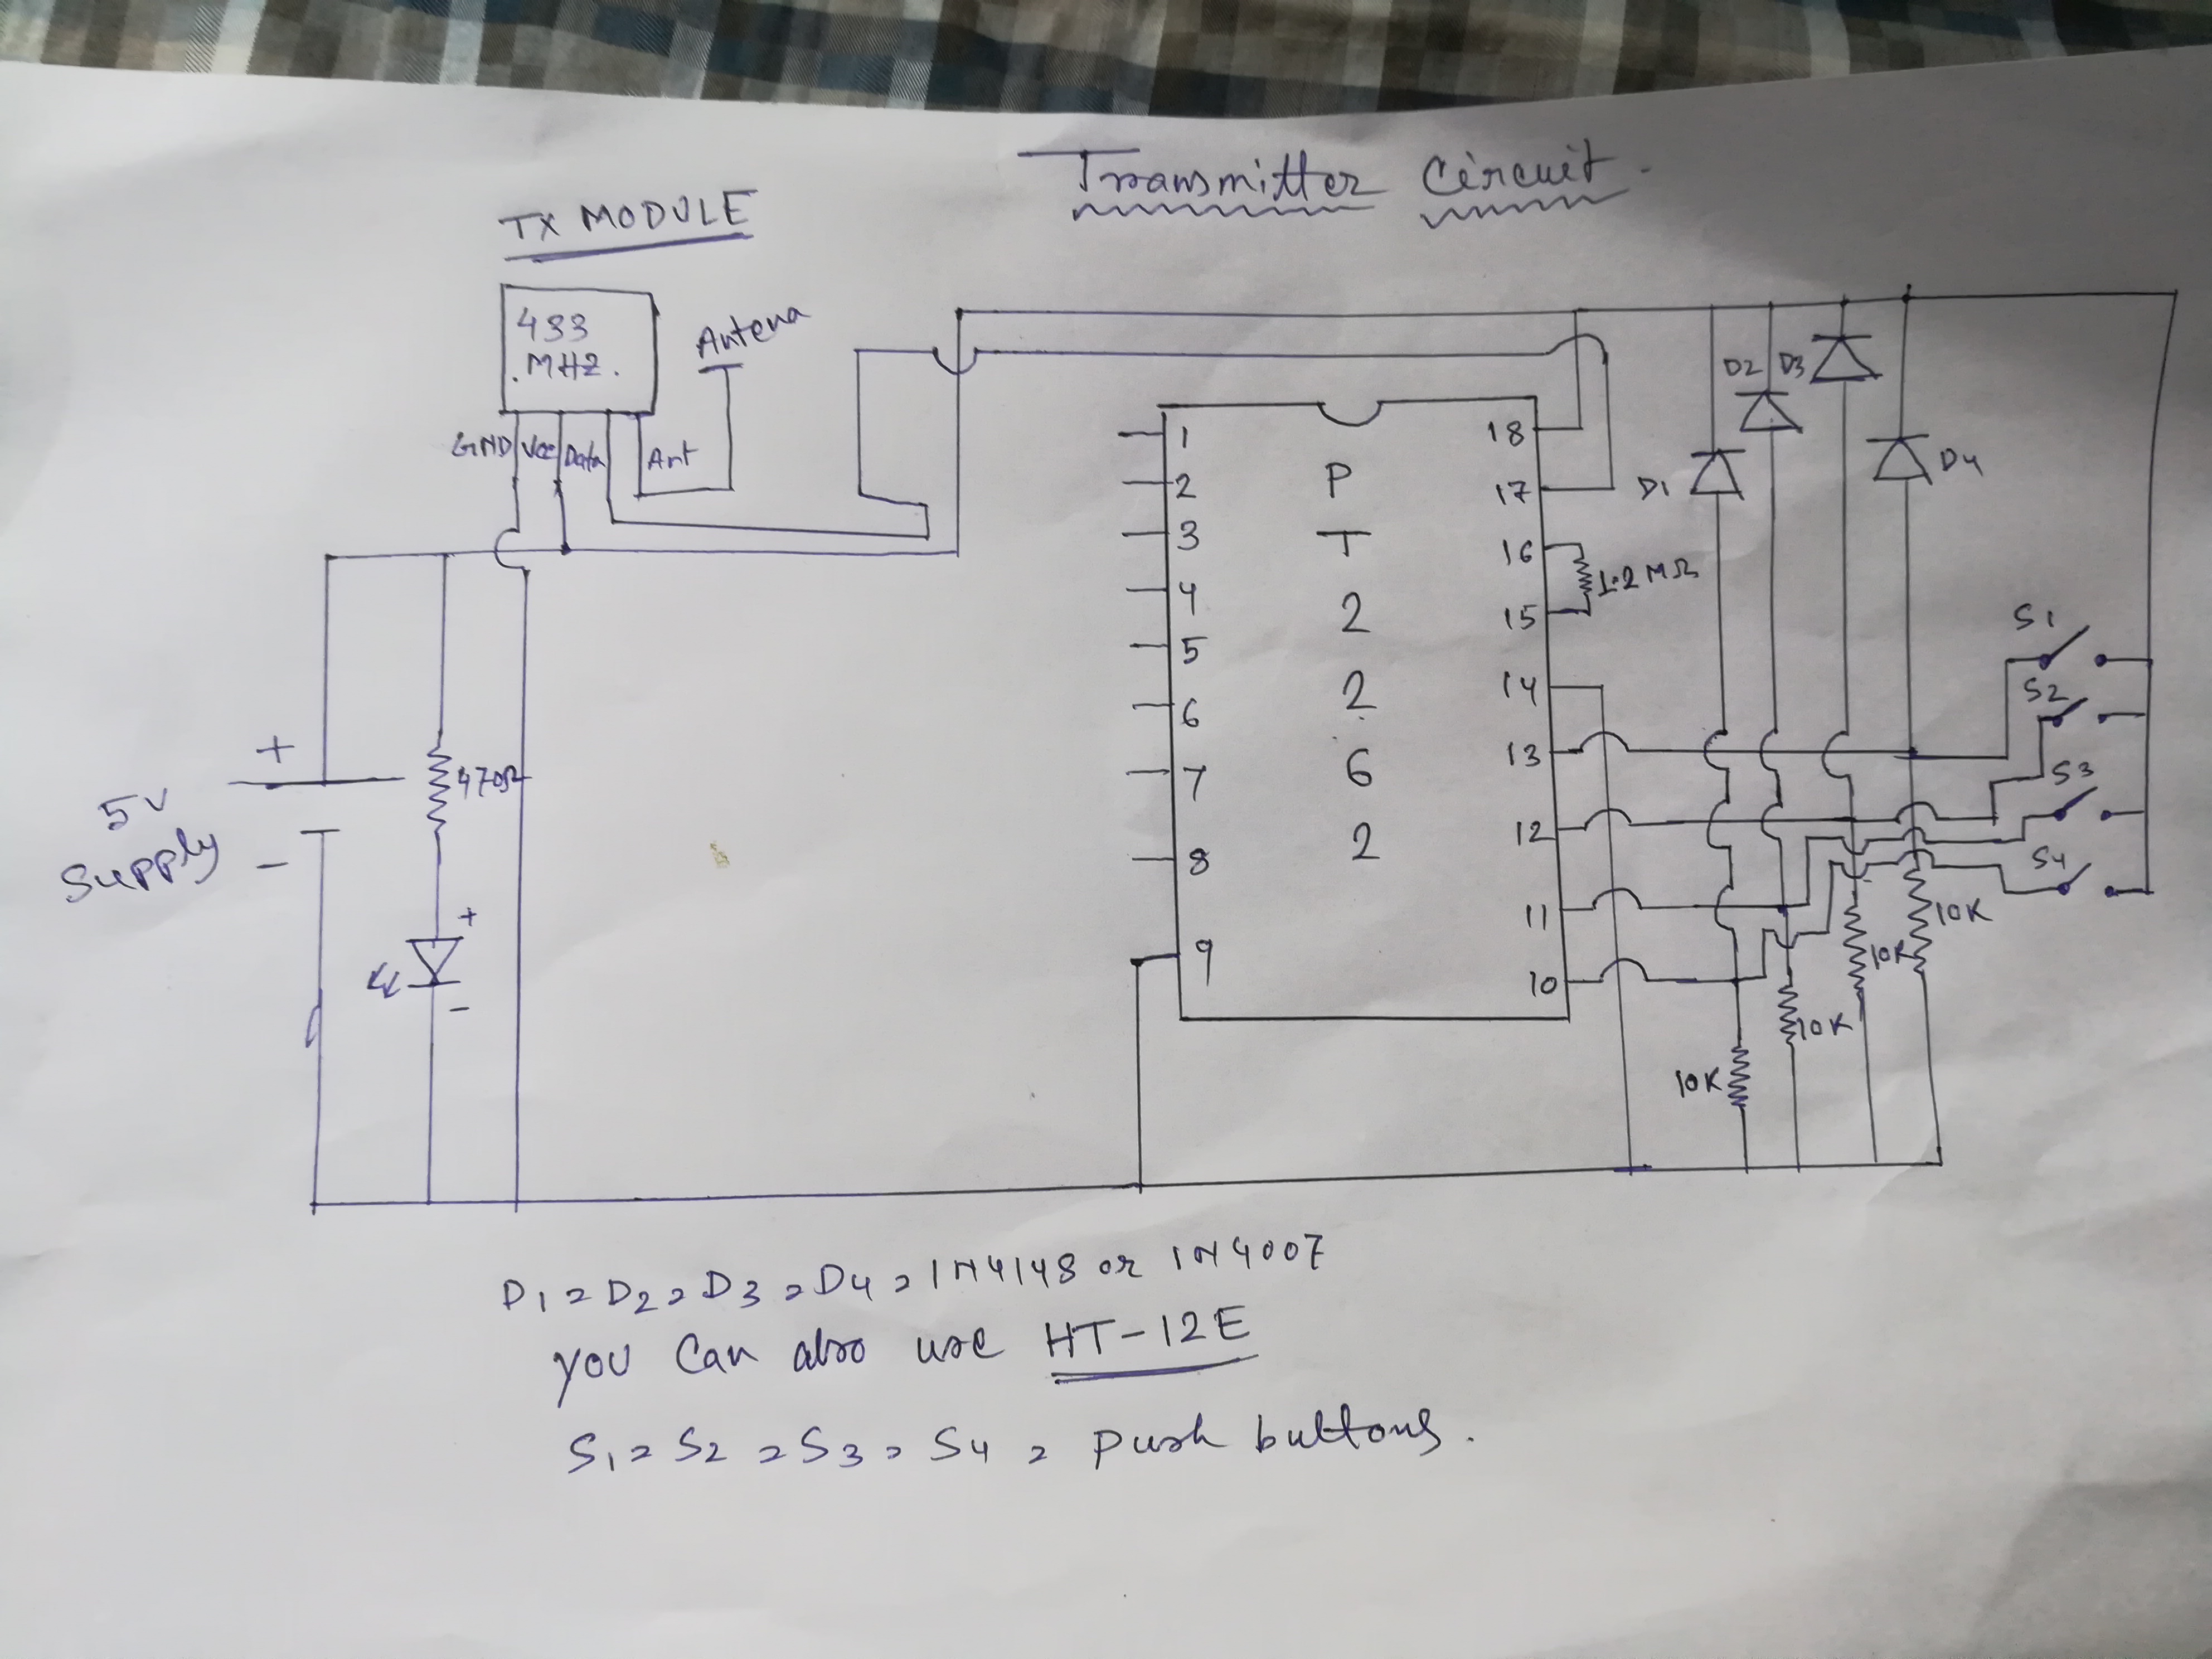 Transmitter Circuit.
TX MODULE
433
.MHZ.
Antena
GND Vcc Data Ant
1
2
3
4
5
6
7
8
9
P
T
2
2
6
2
18
17
16
15
14
13
12
11
10
1.2 MΩ
D1
D2
D3
D4
S1
S2
S3
S4
10K
10K
10K
10K
+
5V
Supply
-
470Ω
+
-
D1=D2=D3=D4=1N4148 or 1N4007
you Can also use HT-12E
S1=S2=S3=S4= Push buttons.